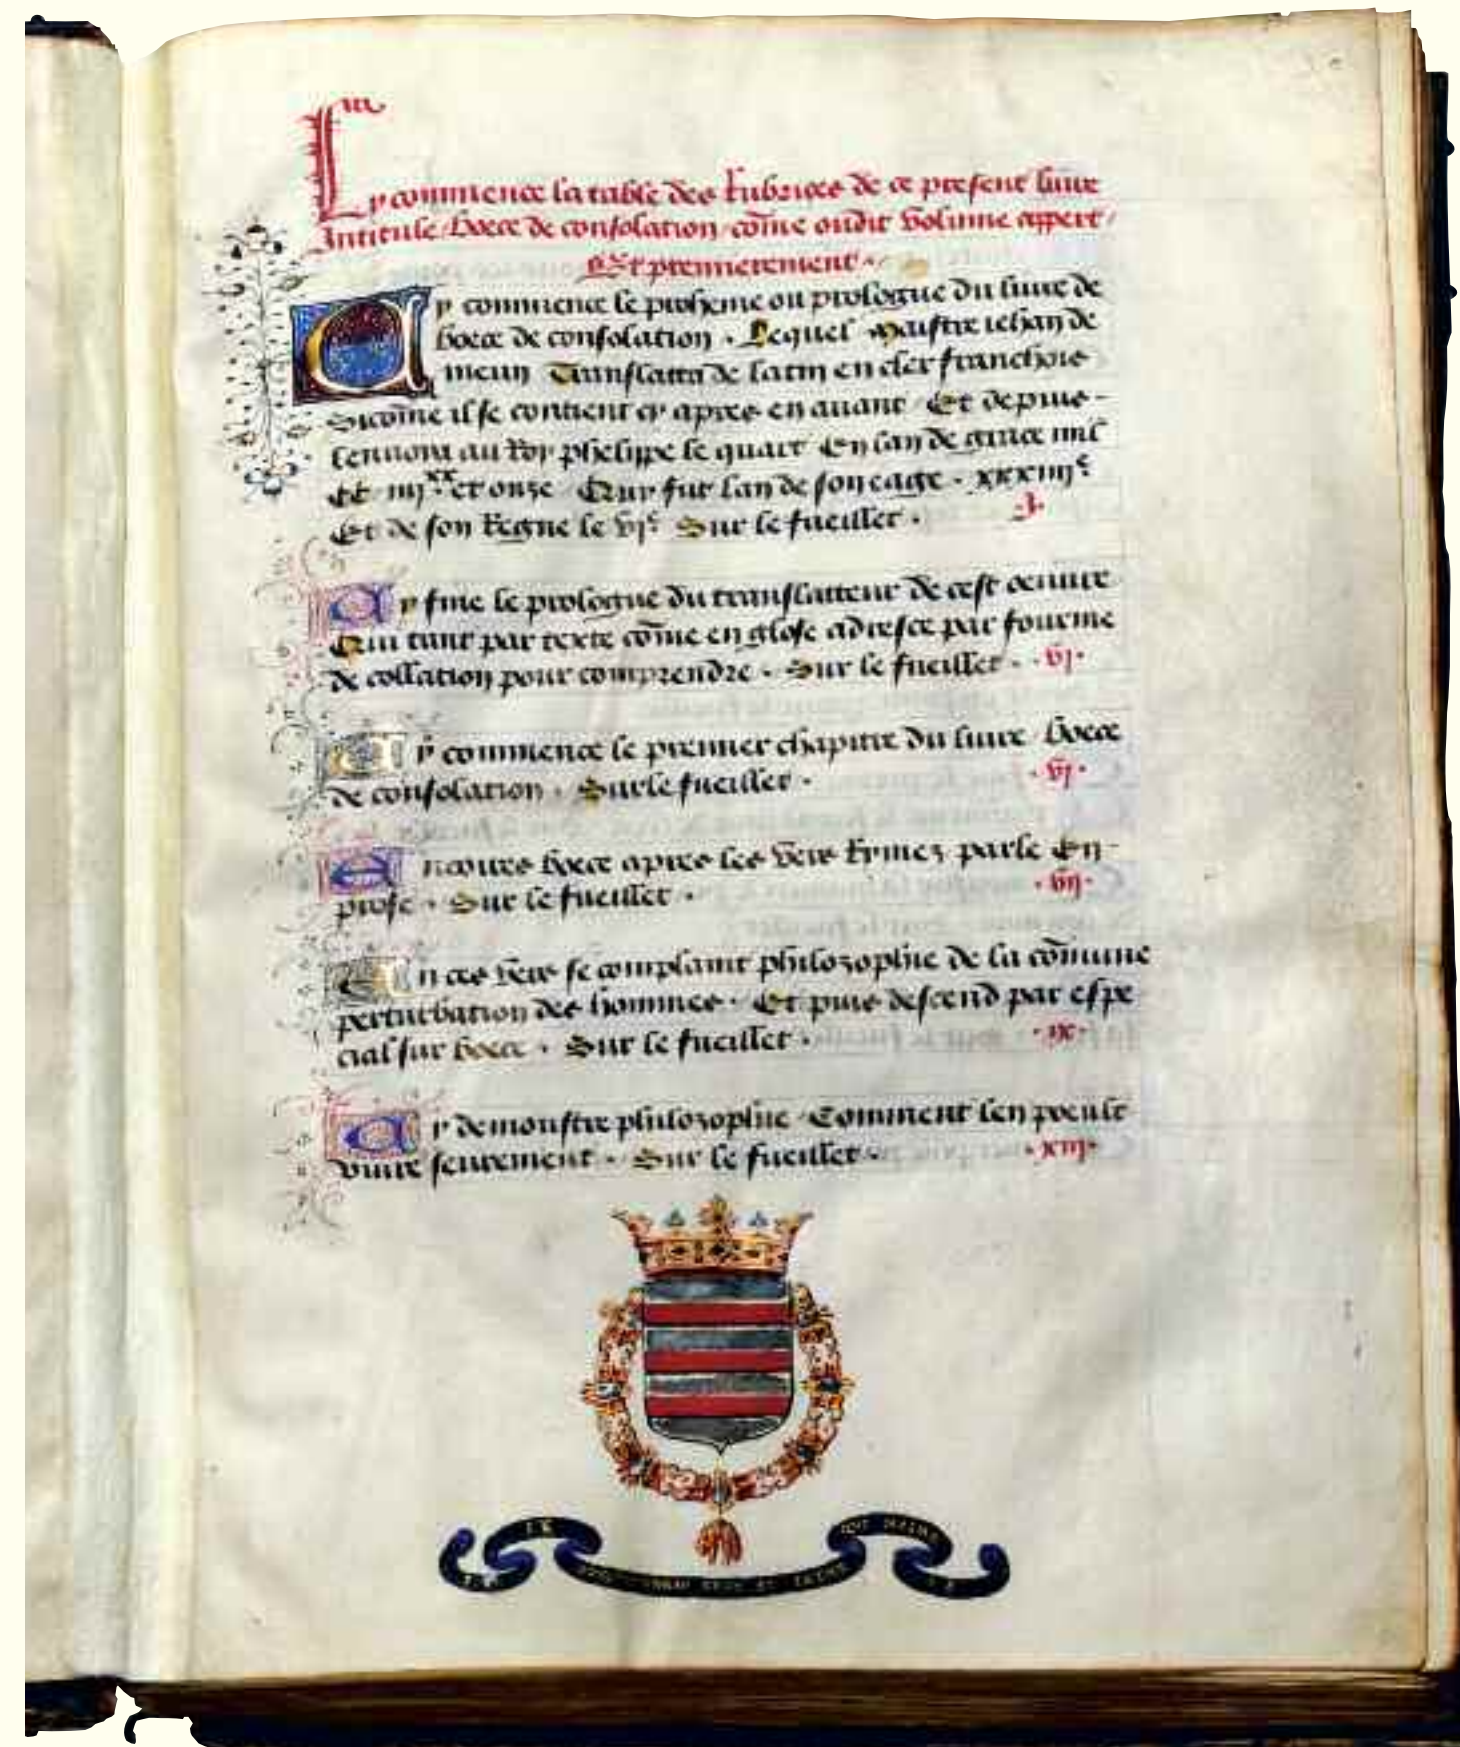 Cy commence la table des Rubrices de ce present liure
Intitule boece de consolation cõme oudit volume appert
Et premierement
Cy commence le proheme ou prologue du liure de
boece de consolation . Lequel maistre iehan de
meun Translatta de latin en cler franchois
Sicõme il se contient cy apres en auant Et depuis
lenuoia au Roy phelippe le quart En lan de grace mil
CC iiij.xx et onze Quy fut lan de son eage . xxxiiije
Et de son Regne le vje Sur le fueillet . .J.
Cy fine le prologue du translatteur de cest oeuure
Qui tant par texte cõme en glose adresce par fourme
de collation pour comprendre . Sur le fueillet . .vj.
Cy commence le premier chapitre du liure boece
de consolation . Sur le fueillet . .vj.
Encores boece apres les vers Rymez parle En
prose . Sur le fueillet . .vij.
En ces vers se complaint philozophie de la cõmune
perturbation des hommes . Et puis descend par espe
cial sur boece . Sur le fueillet . .ix.
Cy demonstre philozophie Comment len poeult
viure seurement . Sur le fueillet . .xiij.